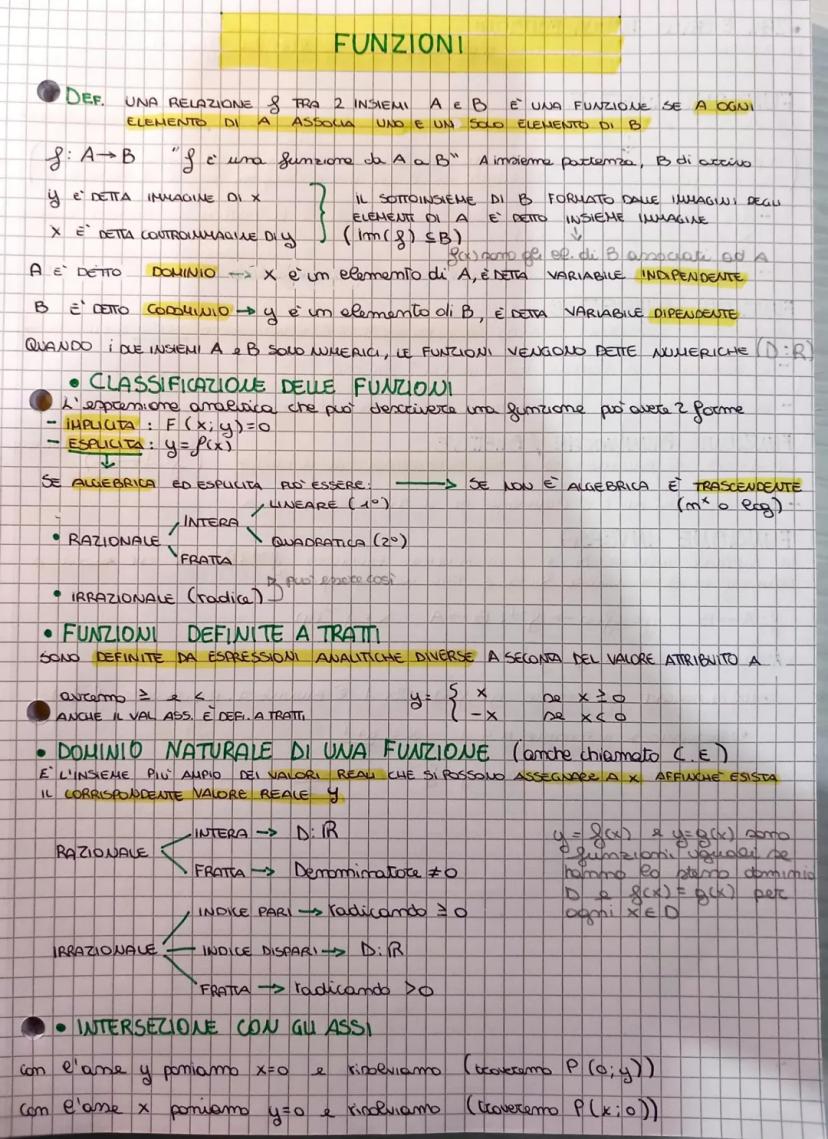 FUNZIONI
DEF. UNA RELAZIONE f TRA 2 INSIEMI A E B E' UNA FUNZIONE SE A OGNI
ELEMENTO DI A ASSOCIA UNO E UN SOLO ELEMENTO DI B
f: A→B "f è una funzione da A a B" A insieme partenza, B di arrivo
y E' DETTA IMMAGINE DI X
X E' DETTA CONTROIMMAGINE DI y
IL SOTTOINSIEME DI B FORMATO DALLE IMMAGINI DEGLI
ELEMENTI DI A E' DETTO INSIEME IMMAGINE
(im(f) ⊆B)
f(x) sono gli el. di B associati ad A
A E' DETTO DOMINIO → X è un elemento di A, È DETTA VARIABILE INDIPENDENTE
B E' DETTO CODOMINIO → y è un elemento di B, È DETTA VARIABILE DIPENDENTE
QUANDO i DUE INSIEMI A e B SONO NUMERICI, LE FUNZIONI VENGONO DETTE NUMERICHE (D:R)
• CLASSIFICAZIONE DELLE FUNZIONI
L'espressione analitica che può descrivere una funzione può avere 2 forme
- IMPLICITA : F(x;y)=0
- ESPLICITA : y=f(x)
SE ALGEBRICA ED ESPLICITA PUÒ ESSERE: → SE NON È ALGEBRICA È TRASCENDENTE
(mˣ o log)
• RAZIONALE
INTERA
LINEARE (1°)
QUADRATICA (2°)
FRATTA
• IRRAZIONALE (radice) → può essere così
• FUNZIONI DEFINITE A TRATTI
SONO DEFINITE DA ESPRESSIONI ANALITICHE DIVERSE A SECONDA DEL VALORE ATTRIBUITO A
avremo ≥ e <
ANCHE IL VAL ASS. È DEF. A TRATTI
y= { x se x≥0
-x se x<0
• DOMINIO NATURALE DI UNA FUNZIONE (anche chiamato C.E)
E' L'INSIEME PIU' AMPIO DEI VALORI REALI CHE SI POSSONO ASSEGNARE A X AFFINCHÉ ESISTA
IL CORRISPONDENTE VALORE REALE y
RAZIONALE
INTERA → D:ℝ
FRATTA → Denominatore ≠0
IRRAZIONALE
INDICE PARI → radicando ≥ 0
INDICE DISPARI → D:ℝ
FRATTA → radicando >0
y=f(x) e y=g(x) sono
funzioni uguali se
hanno lo stesso dominio
D e f(x)=g(x) per
ogni x∈D
• INTERSEZIONE CON GLI ASSI
con l'asse y poniamo x=0 e risolviamo (troveremo P(0;y))
con l'asse x poniamo y=0 e risolviamo (troveremo P(x;0))